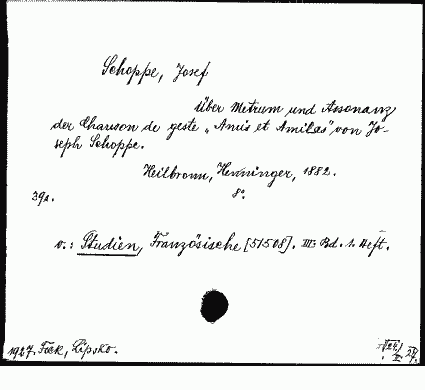 Schoppe, Josef
Über Metrum und Assonanz
der Chanson de geste „Amis et Amiles" von Jo-
seph Schoppe.
Heilbronn, Henninger, 1882.
8°.
39a.
v.: Studien, Französische [51508]. III. Bd. 1. Heft.
1927. Fock, Lipsko.